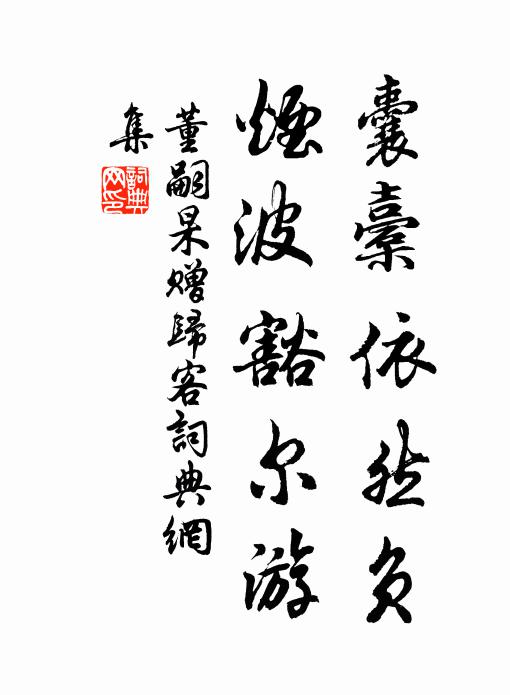 囊橐依然負
煙波豁尔游
董嗣杲赠歸客詞典網
集
詞典網印